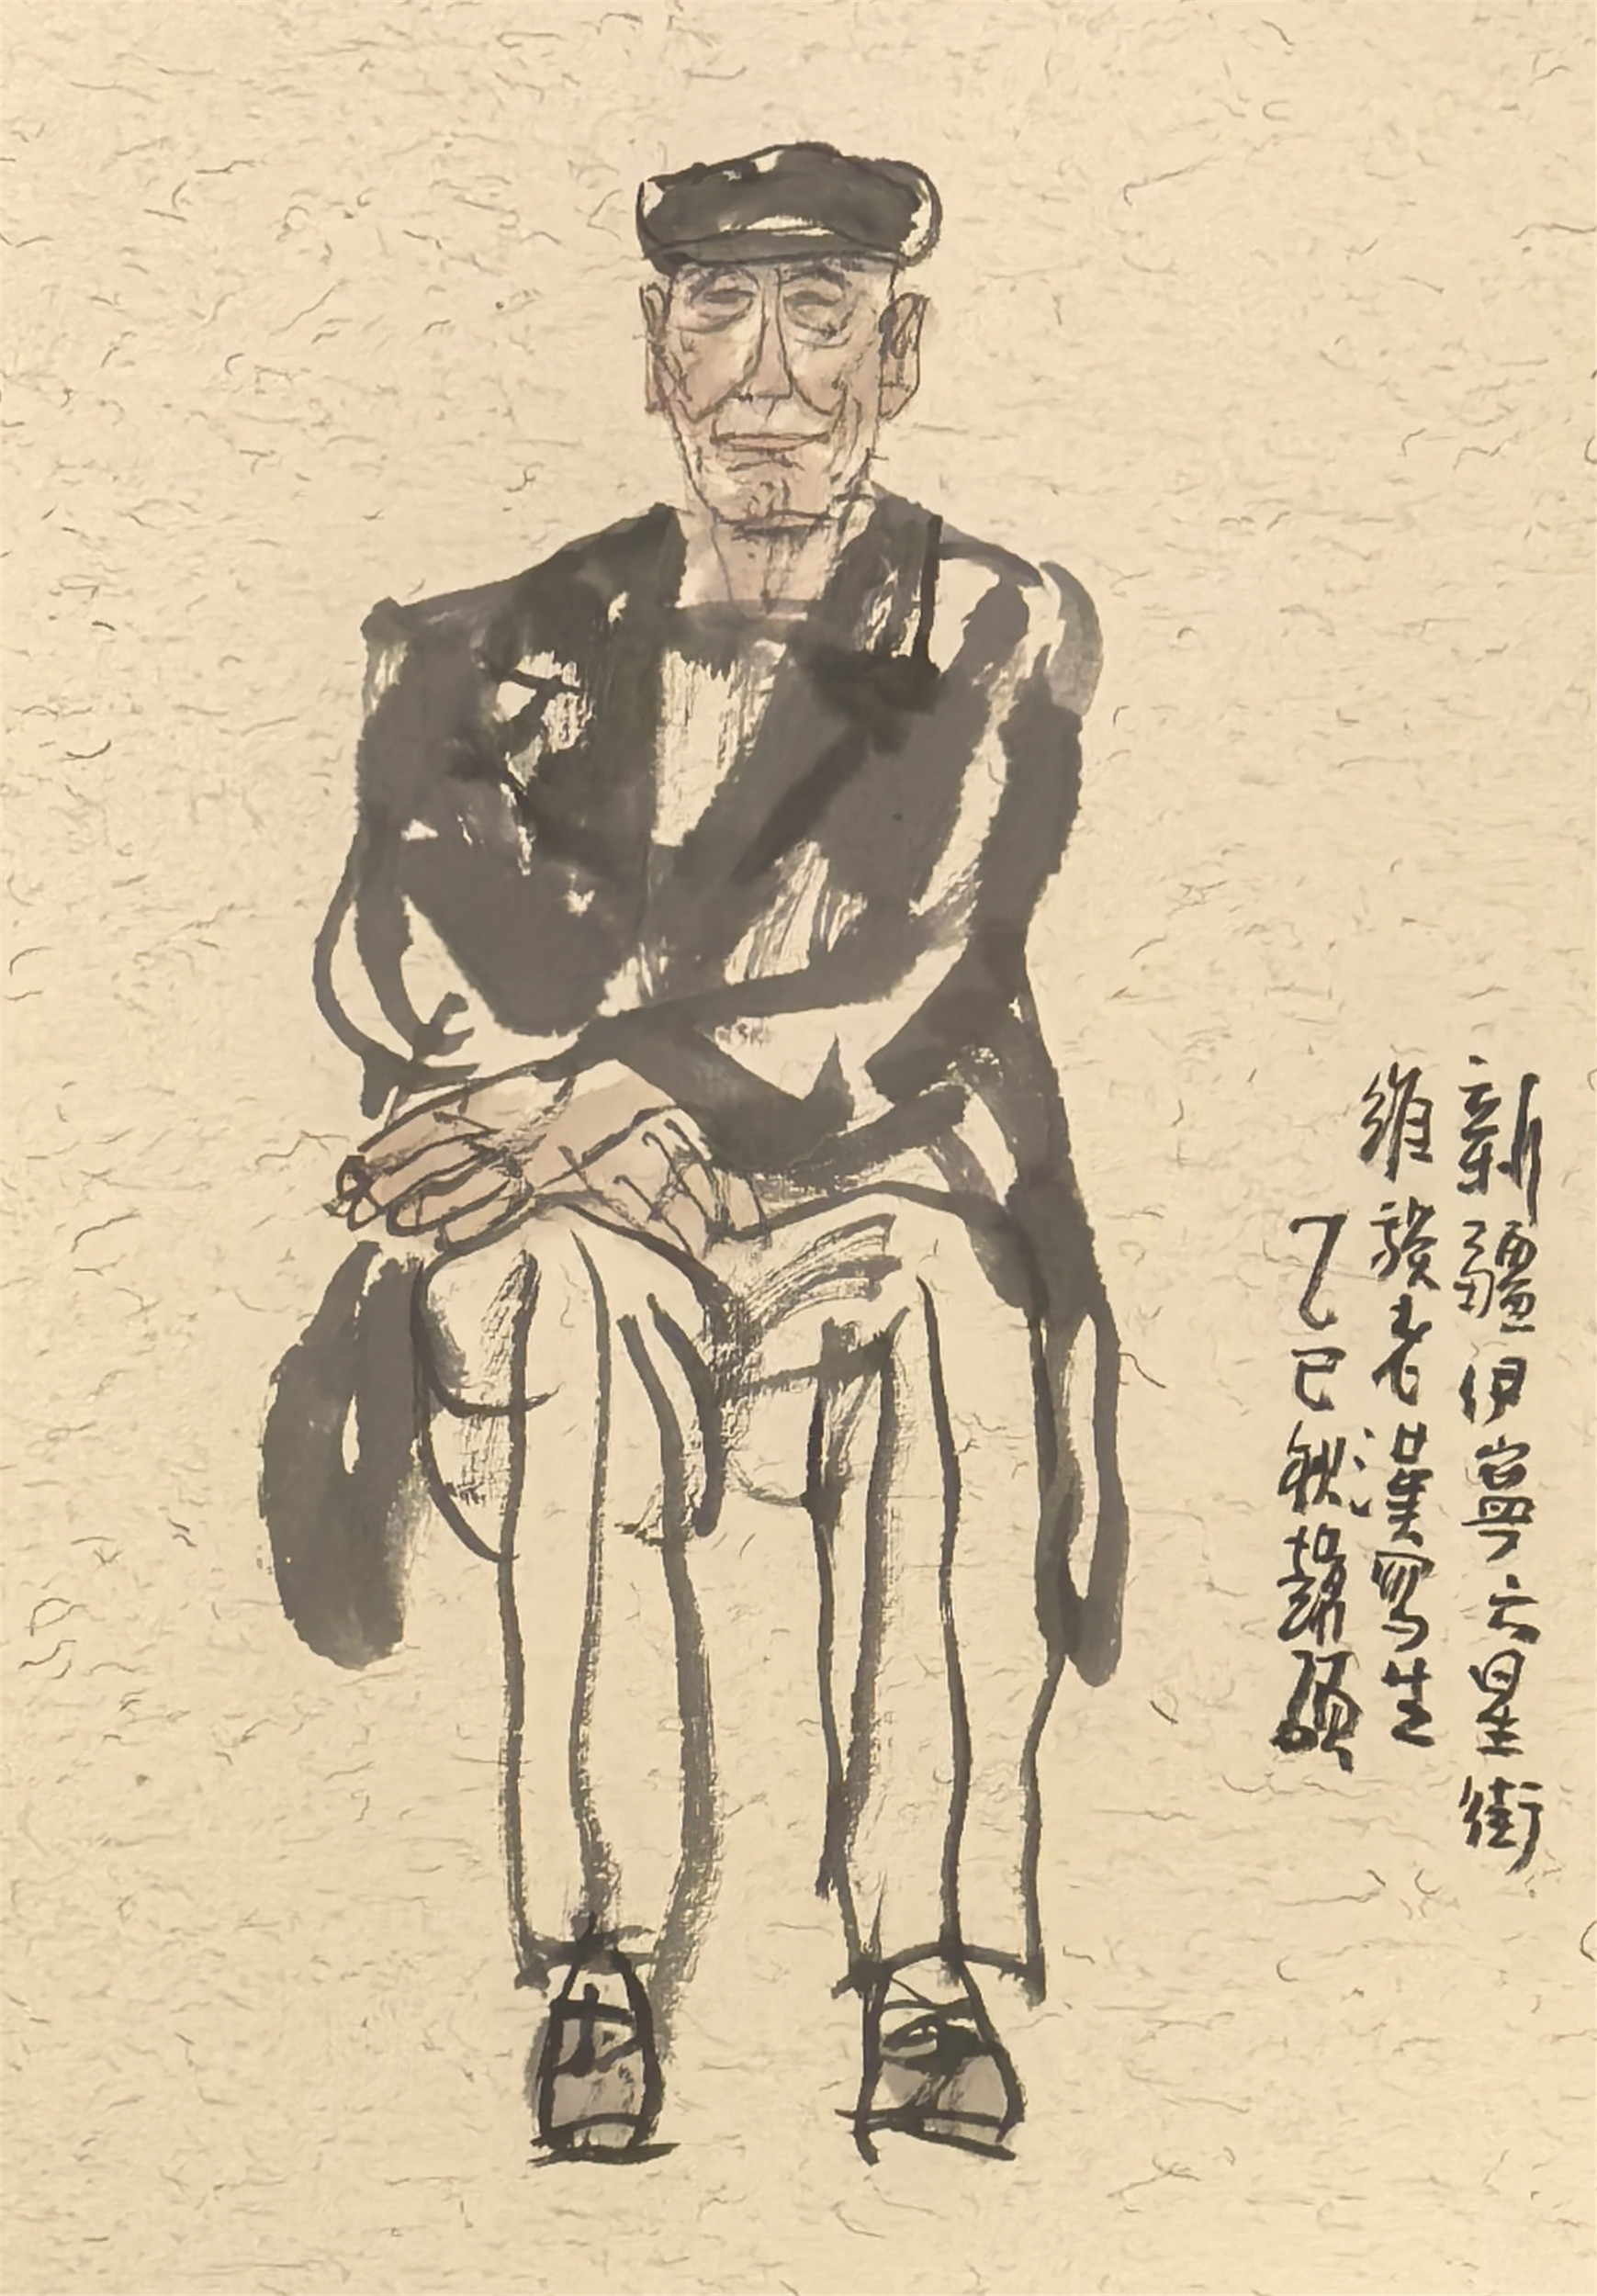 新疆伊寧六星街
維族老漢寫生
乙巳秋韓碩